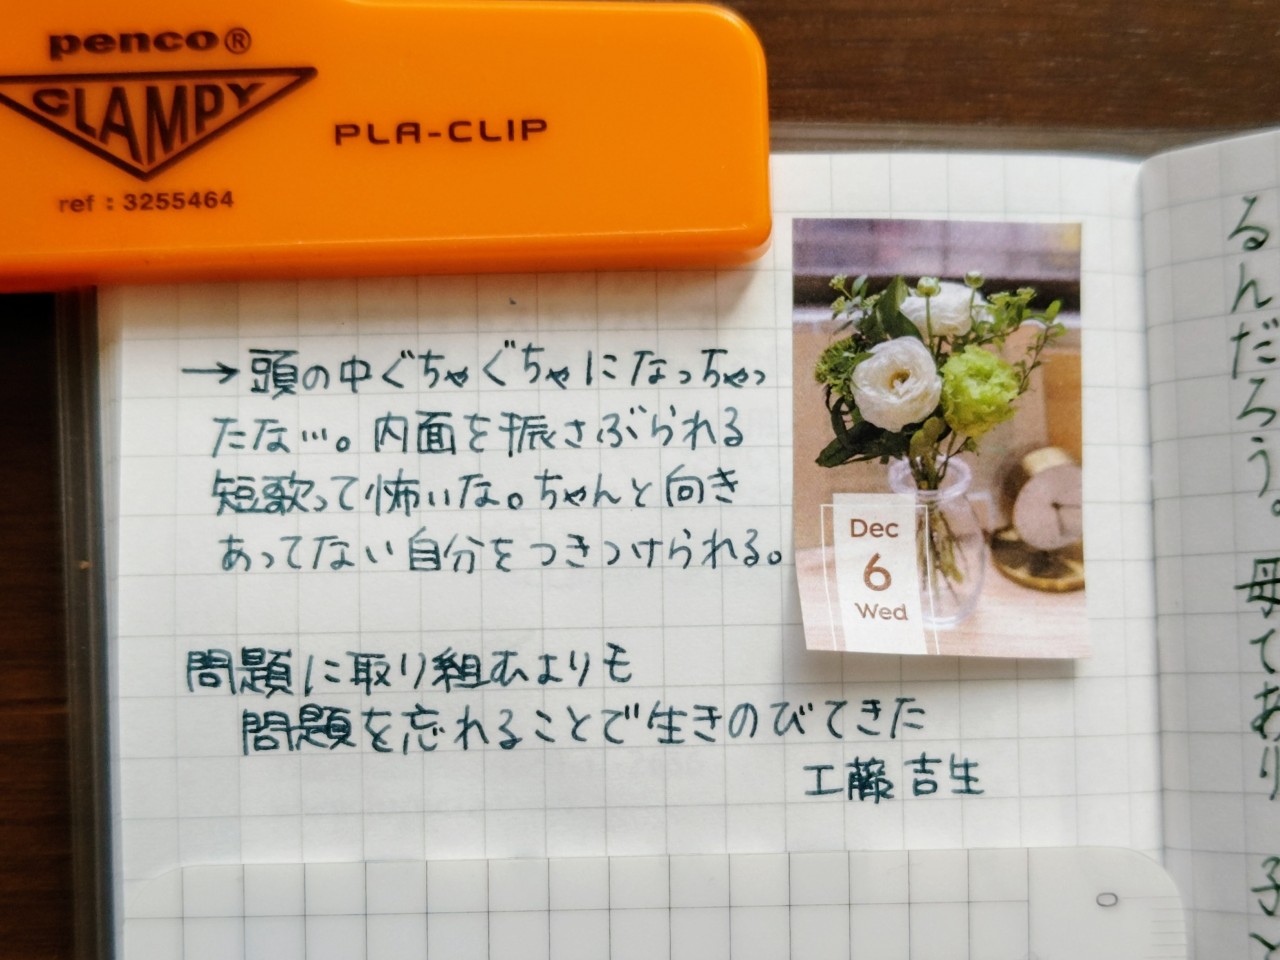 penco®
CLAMPY
PLA-CLIP
ref : 3255464
→頭の中ぐちゃぐちゃになっちゃっ
たな…。内面を振さぶられる
短歌って怖いな。ちゃんと向き
あってない自分をつきつけられる。
Dec
6
Wed
問題に取り組むよりも
問題を忘れることで生きのびてきた
工藤吉生
るんだろう。母ており
子と
0